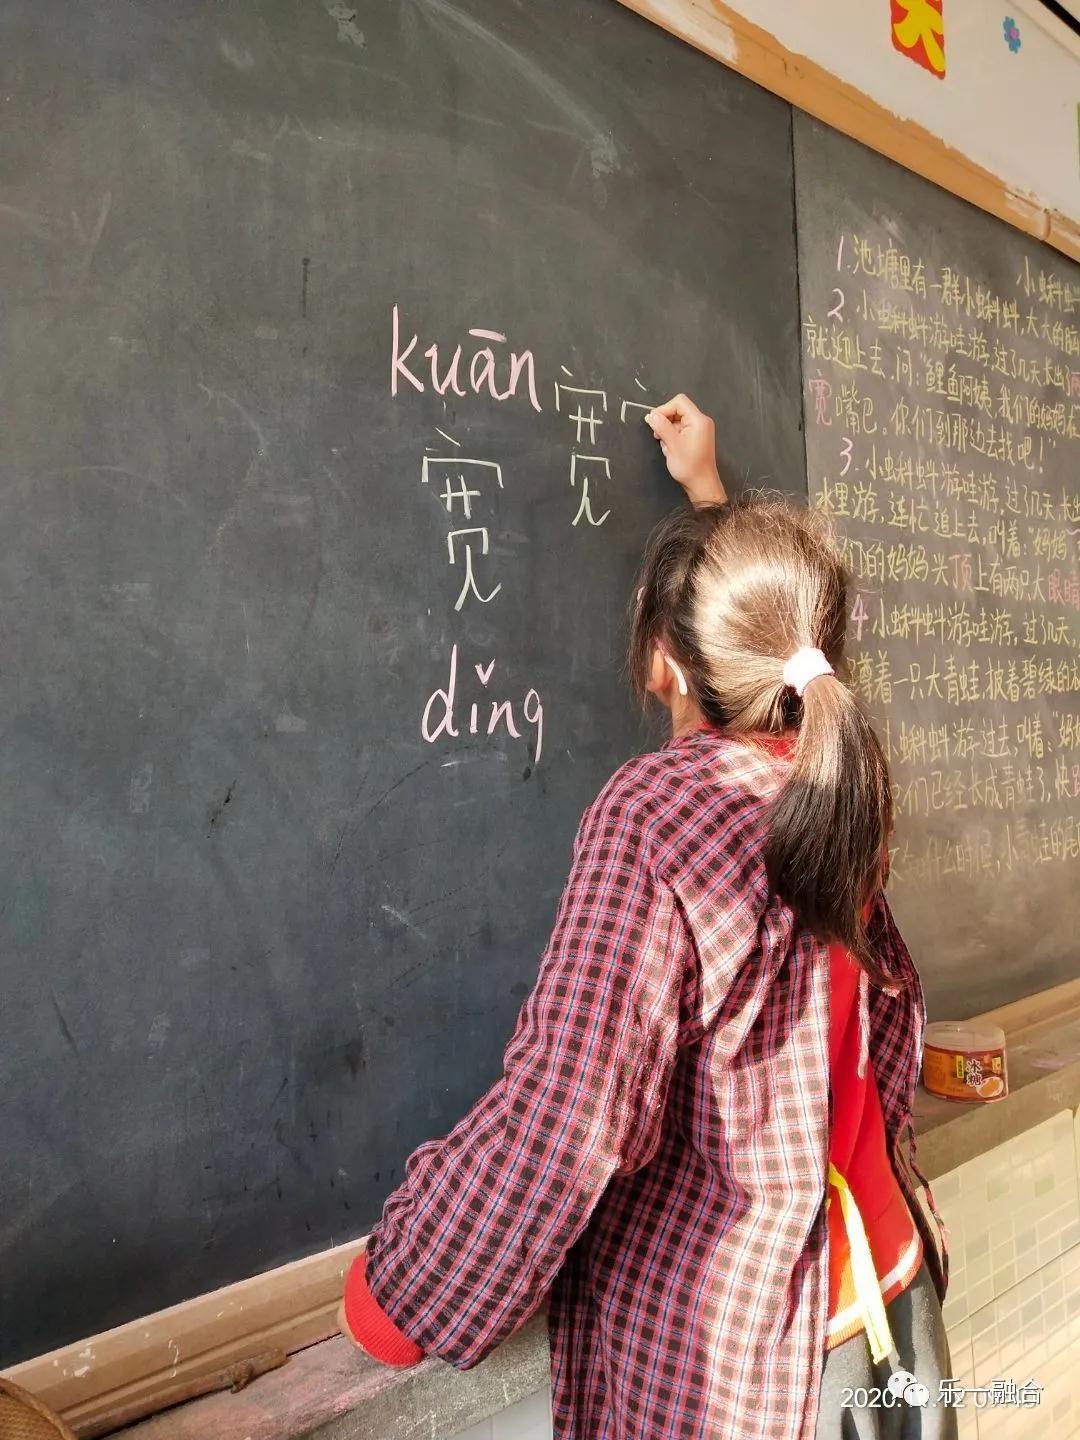 kuān 宽 宀
宽
dǐng
小蝌蚪
1.池塘里有一群小蝌蚪,大大的脑
2.小蝌蚪游哇游,过了几天,长出两
就迎上去,问:“鲤鱼阿姨,我们的妈妈在
宽嘴巴。你们到那边去找吧!
3.小蝌蚪游哇游,过了几天,长出
水里游,连忙追上去,叫着:“妈妈
们的妈妈头顶上有两只大眼睛
4小蝌蚪游哇游,过了几天,
蹲着一只大青蛙,披着碧绿的衣
小蝌蚪游过去,叫着:“妈妈
你们已经长成青蛙了,快跳
不知什么时候,小青蛙的尾
冰糖
2020
乐一融合